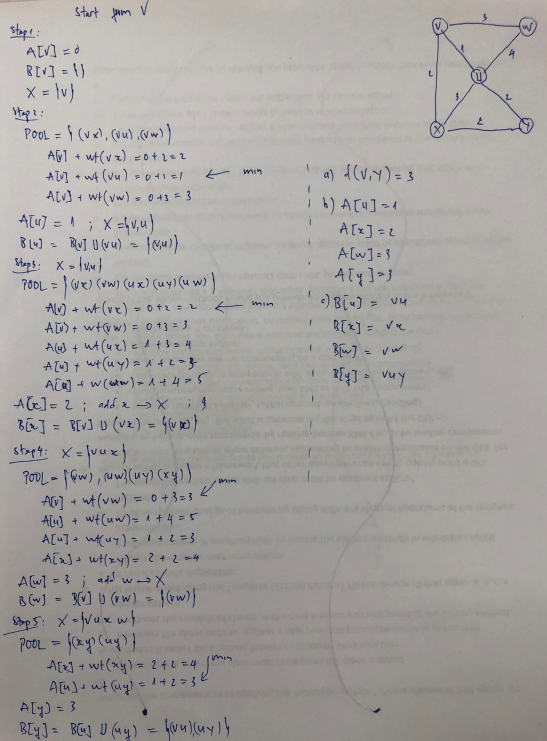 Start from V
Step 1:
A[V] = 0
B[V] = { }
X = {V}
Step 2:
POOL = {(vx), (vu), (vw)}
A[v] + wt(vx) = 0+2 = 2
A[v] + wt(vu) = 0+1 = 1 ← min
A[v] + wt(vw) = 0+3 = 3
A[u] = 1 ; X = {v,u}
B[u] = B[v] U (vu) = {(v,u)}
Step 3: X = {v,u}
POOL = {(vx)(vw)(ux)(uy)(uw)}
A[v] + wt(vx) = 0+2 = 2 ← min
A[v] + wt(vw) = 0+3 = 3
A[u] + wt(ux) = 1+3 = 4
A[u] + wt(uy) = 1+2 = 3
A[u] + w(uw) = 1+4 = 5
A[x] = 2 ; add x → X ;
B[x] = B[v] U (vx) = {(vx)}
Step 4: X = {v u x}
POOL = {(vw), (uw)(uy)(xy)}
min
A[v] + wt(vw) = 0+3 = 3
A[u] + wt(uw) = 1+4 = 5
A[u] + wt(uy) = 1+2 = 3
A[x] + wt(xy) = 2+2 = 4
A[w] = 3 ; add w → X
B[w] = B[v] U (vw) = {(vw)}
Step 5: X = {v u x w}
POOL = {(xy)(uy)}
min
A[x] + wt(xy) = 2+2 = 4
A[u] + wt(uy) = 1+2 = 3
A[y] = 3
B[y] = B[u] U (uy) = {(vu)(uy)}
V 3 W
1 4
2 U
3 2
X 2 Y
a) d(V,Y) = 3
b) A[u] = 1
A[x] = 2
A[w] = 3
A[y] = 3
c) B[u] = vu
B[x] = vx
B[w] = vw
B[y] = vuy